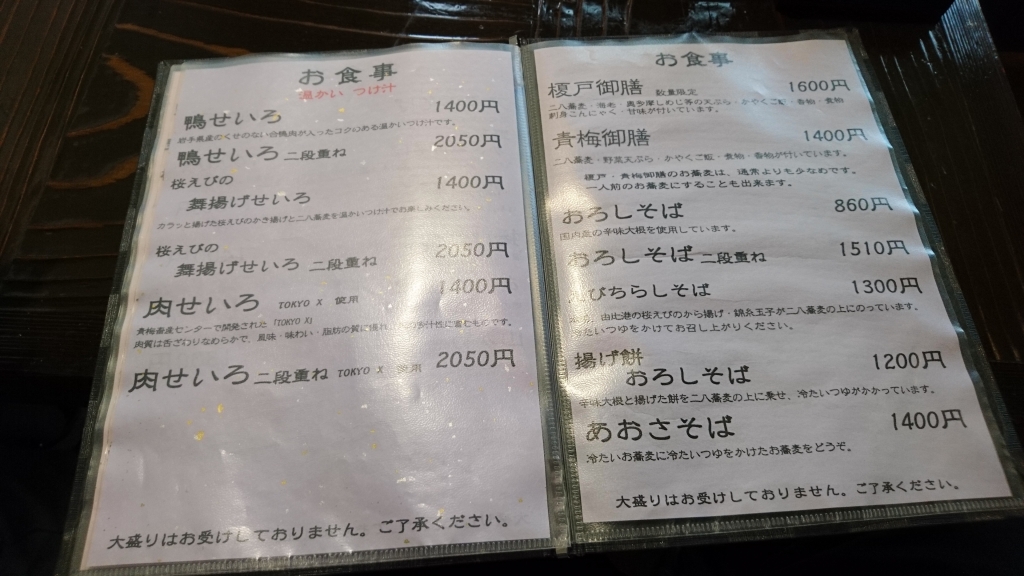 お食事
温かい つけ汁
鴨せいろ 1400円
岩手県産のくせのない合鴨肉が入ったコクのある温かいつけ汁です。
鴨せいろ 二段重ね 2050円
桜えびの
舞揚げせいろ 1400円
カラッと揚げた桜えびのかき揚げと二八蕎麦を温かいつけ汁でお楽しみください。
桜えびの
舞揚げせいろ 二段重ね 2050円
肉せいろ TOKYO X 使用 1400円
青梅畜産センターで開発された「TOKYO X」
肉質は舌ざわりなめらかで、風味・味わい・脂肪の質に優れ
肉せいろ 二段重ね TOKYO X 使用 2050円
大盛りはお受けしておりません。ご了承ください。
お食事
榎戸御膳 数量限定 1600円
二八蕎麦・海老・奥多摩しめじ等の天ぷら・かやくご飯・香物・煮物
刺身こんにゃく・甘味が付いています。
青梅御膳 1400円
二八蕎麦・野菜天ぷら・かやくご飯・煮物・香物が付いています。
榎戸・青梅御膳のお蕎麦は、通常よりも少なめです。
一人前のお蕎麦にすることも出来ます。
おろしそば 860円
国内産の辛味大根を使用しています。
おろしそば 二段重ね 1510円
えびちらしそば 1300円
由比港の桜えびのから揚げ・錦糸玉子が二八蕎麦の上にのっています。
冷たいつゆをかけてお召し上がりください。
揚げ餅
おろしそば 1200円
辛味大根と揚げた餅を二八蕎麦の上に乗せ、冷たいつゆがかかっています。
あおさそば 1400円
冷たいお蕎麦に冷たいつゆをかけたお蕎麦をどうぞ。
大盛りはお受けしておりません。ご了承ください。